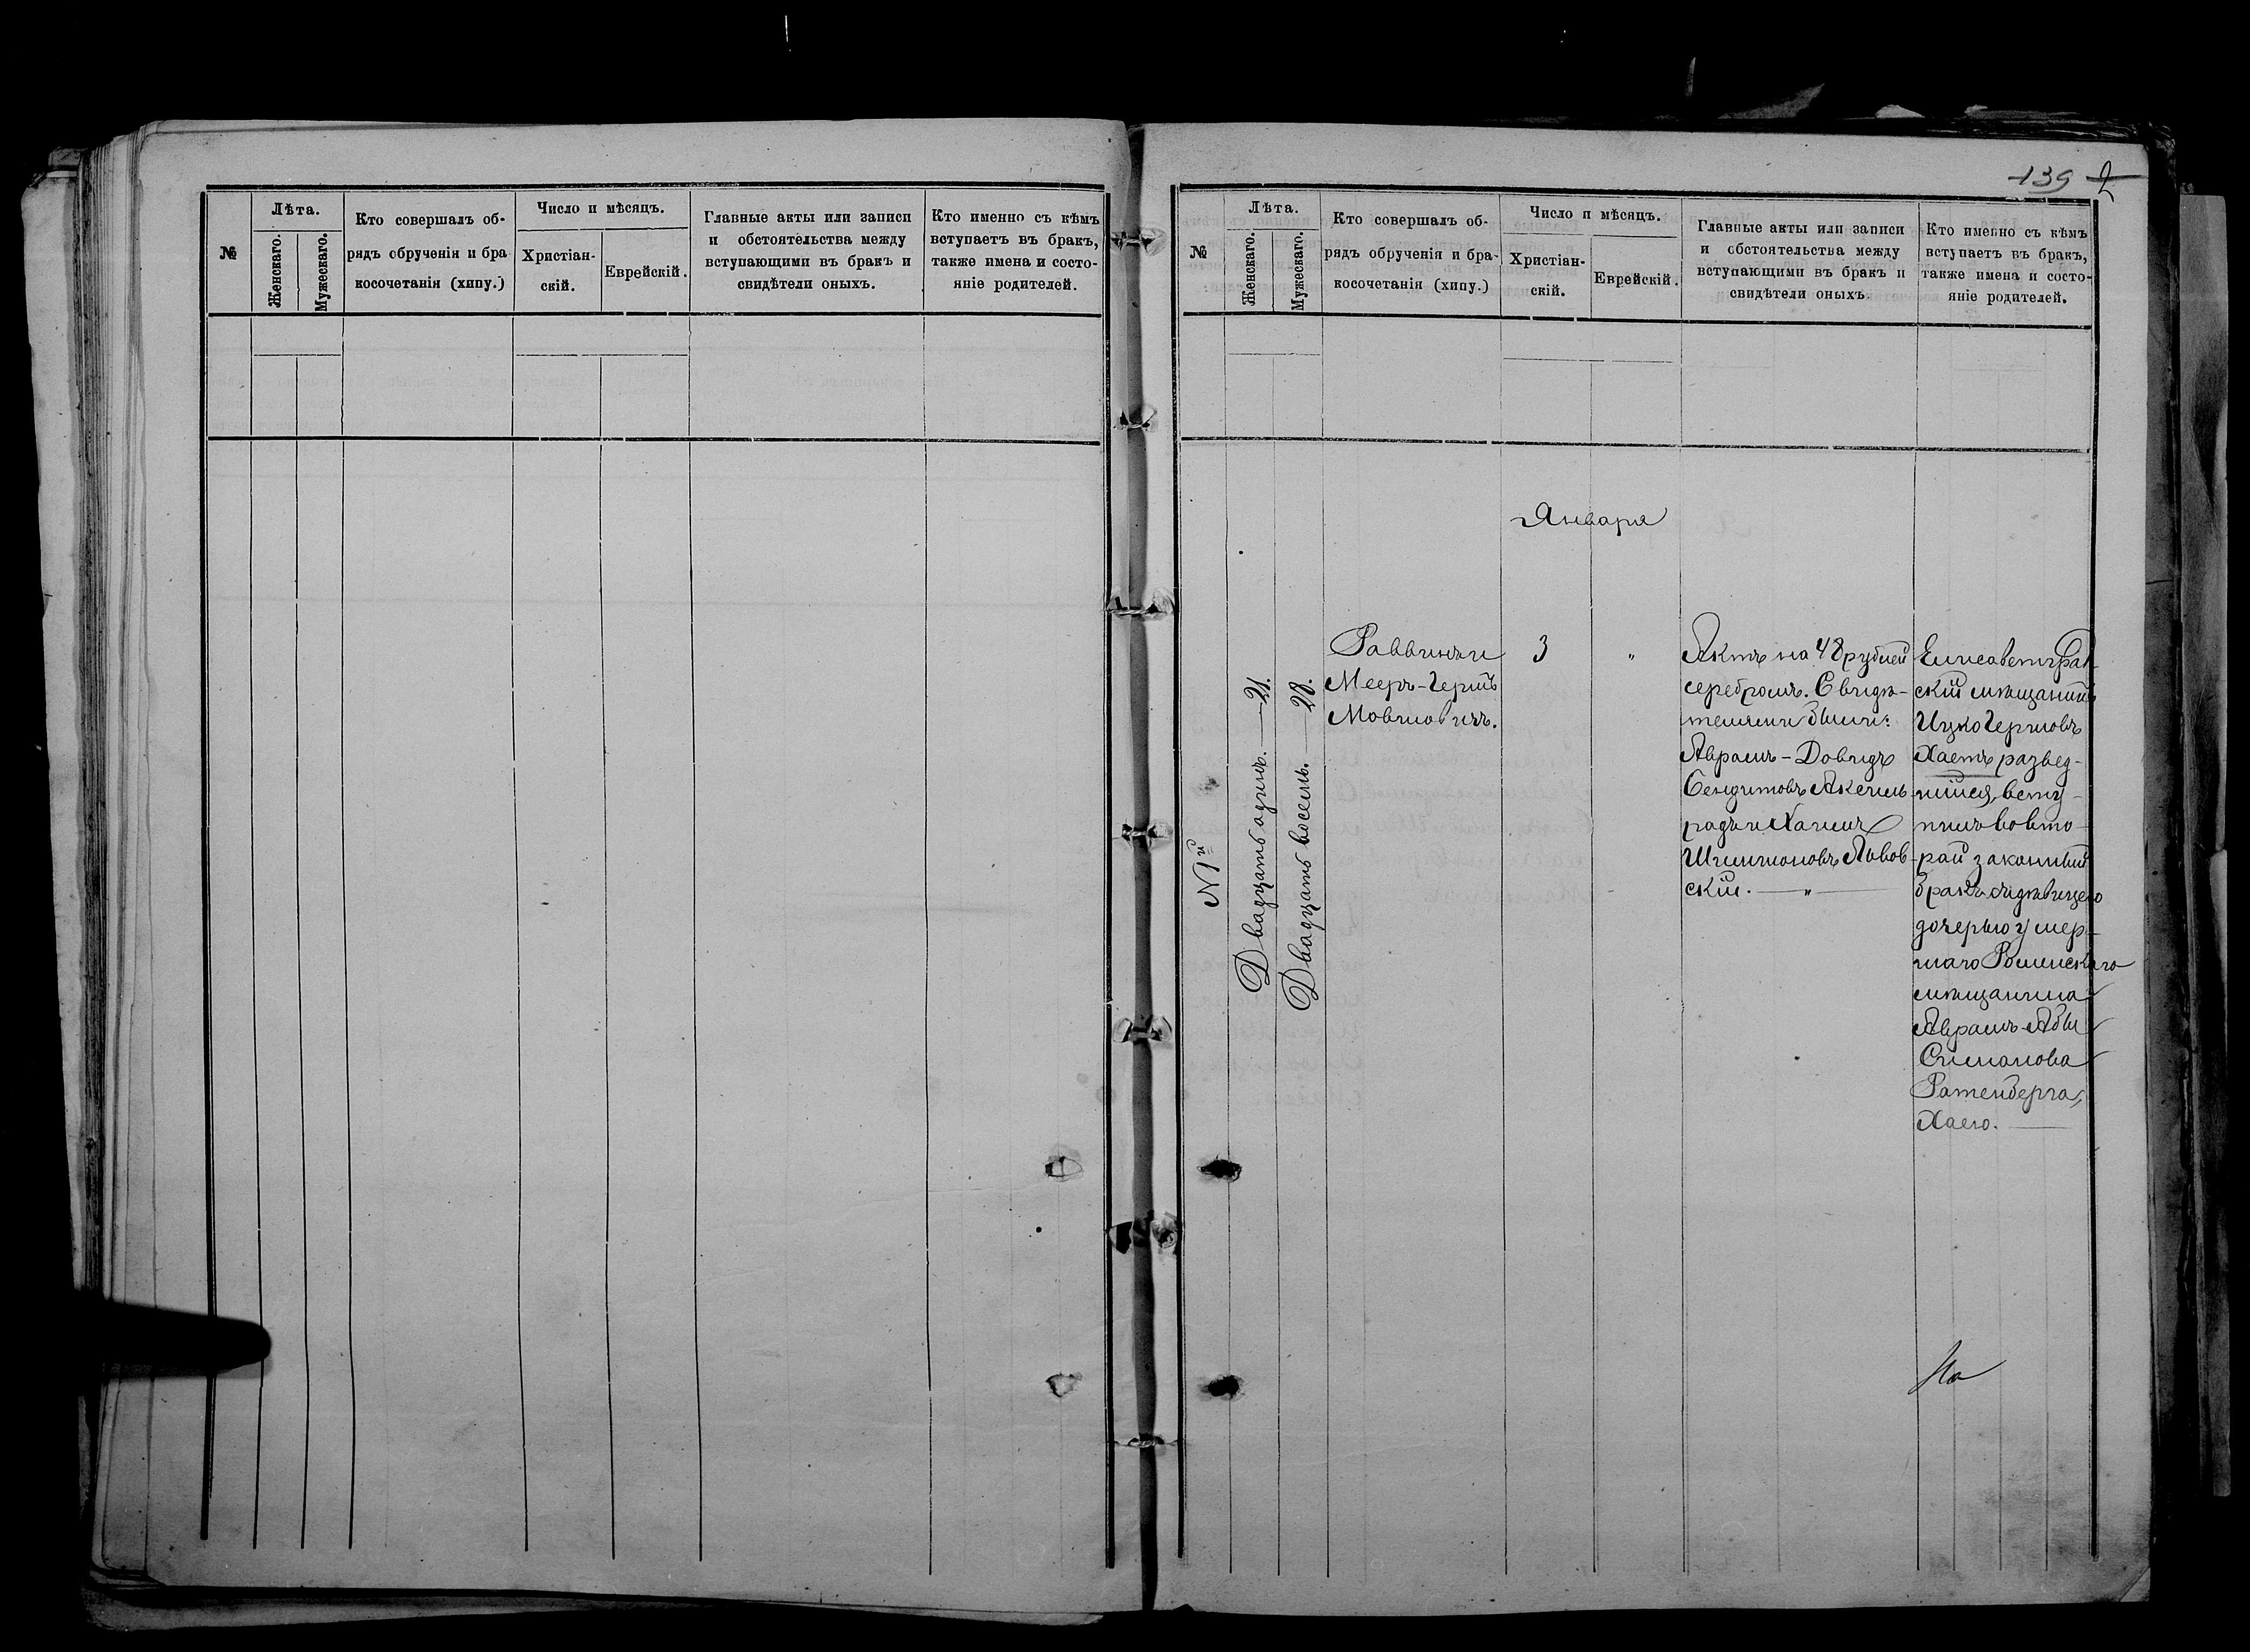 №
Лѣта.
Женскаго.
Мужескаго.
Кто совершалъ об-
рядъ обрученія и бра
косочетанія (хипу.)
Число и мѣсяцъ.
Христіан-
скій.
Еврейскій.
Главные акты или записи
и обстоятельства между
вступающими въ бракъ и
свидѣтели оныхъ.
Кто именно съ кѣмъ
вступаетъ въ бракъ,
также имена и состо-
яніе родителей.
139 2
№
Лѣта.
Женскаго.
Мужескаго.
Кто совершалъ об-
рядъ обрученія и бра-
косочетанія (хипу.)
Число и мѣсяцъ.
Христіан-
скій.
Еврейскій.
Главные акты или записи
и обстоятельства между
вступающими въ бракъ и
свидѣтели оныхъ.
Кто именно съ кѣмъ
вступаетъ въ бракъ,
также имена и состо-
яніе родителей.
Января
№ 1й
Двадцать одинъ. — 21.
Двадцать восемь. — 28.
Раввинъ
Мееръ-Гершъ
Мовшовичъ.
3
"
Актъ на 48 рублей
серебромъ. Свидѣ-
телями были:
Аврамъ-Довидъ
Сендеровъ
радъ и Хаимъ
Шлимоновъ Львов-
скій. — " —
Елисаветград-
скій мѣщанинъ
Ицко Гершовъ
Хаетъ развед-
шійся, всту-
пилъ во вто-
рой законный
бракъ съ дѣвицею
дочерью умер-
шаго Роменскаго
мѣщанина
Аврамъ-Абы
Симонова
Ратенберга,
Хаею. —
На